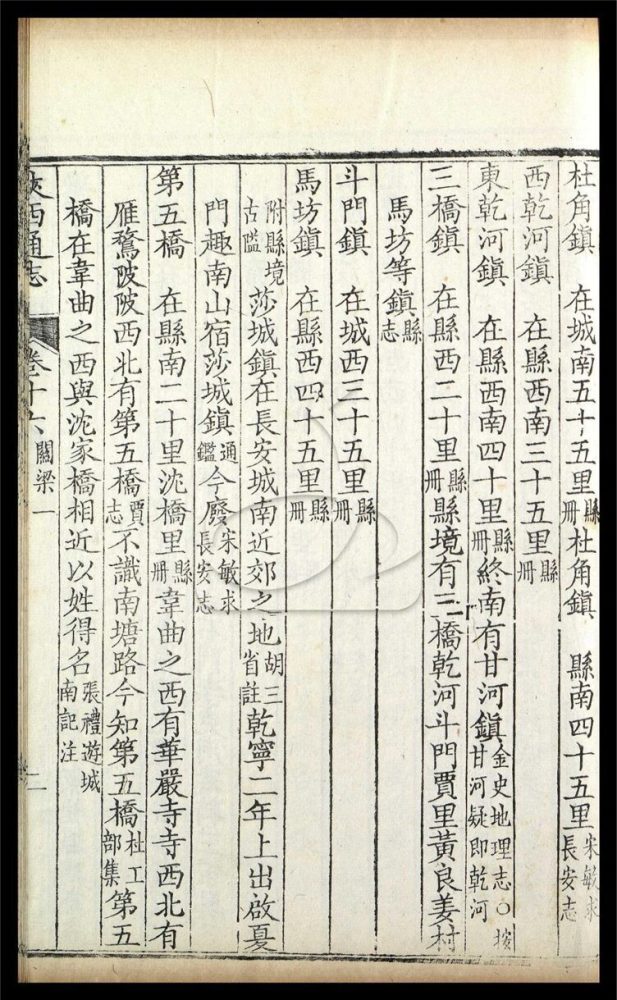 杜角鎮　在城南五十五里縣冊杜角鎮　縣南四十五里宋敏求長安志
西乾河鎮　在縣西南三十五里縣冊
東乾河鎮　在縣西南四十里縣冊終南有甘河鎮金史地理志○按甘河疑即乾河
三橋鎮　在縣西二十里縣冊縣境有三橋乾河斗門賈里黃良姜村
馬坊等鎮縣志
斗門鎮　在城西三十五里縣冊
馬坊鎮　在縣西四十五里縣冊
附縣境古隘莎城鎮在長安城南近郊之地胡三省註乾寧二年上出啟夏
門趣南山宿莎城鎮通鑑今廢宋敏求長安志
第五橋　在縣南二十里沈橋里縣冊韋曲之西有華嚴寺寺西北有
雁鶩陂陂西北有第五橋賈志不識南塘路今知第五橋杜工部集第五
橋在韋曲之西與沈家橋相近以姓得名張禮遊城南記注
陝西通志　卷十六　關梁一　二